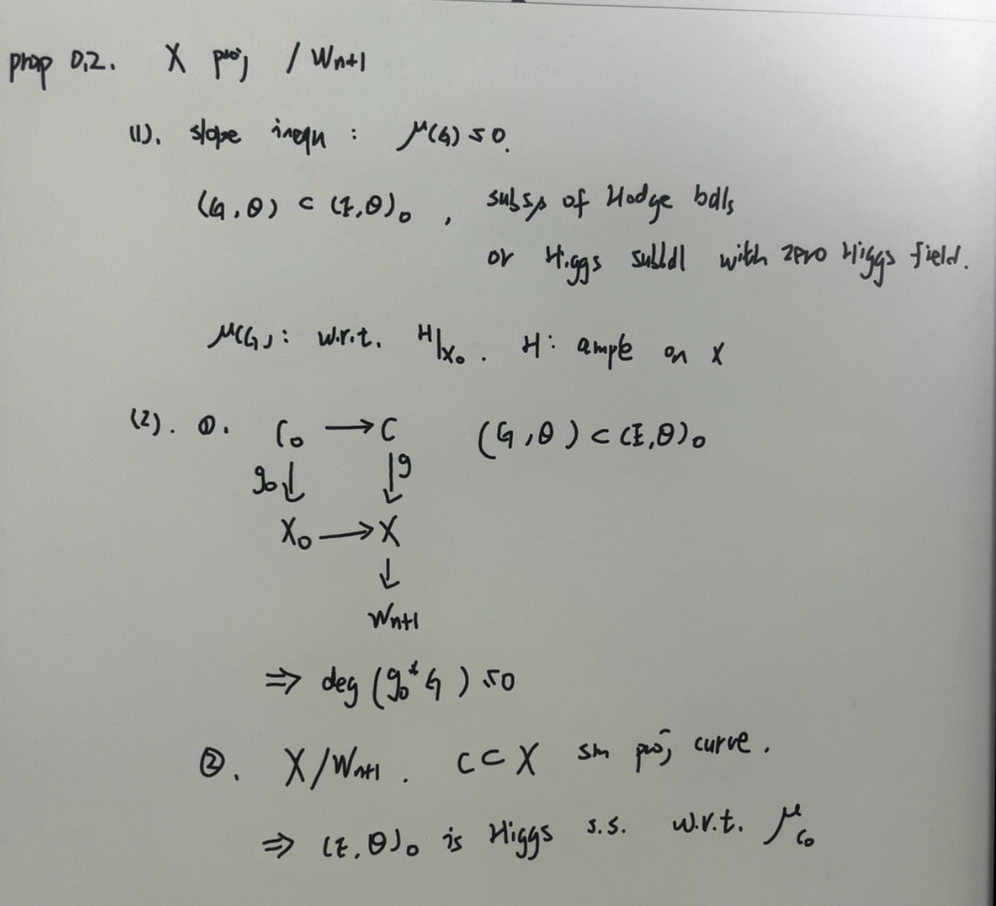 prop 0,2. X proj / Wn+1
(1). slope inequ : μ(G) ≤ 0.
(G, θ) ⊂ (E, θ)₀ , subsp of Hodge bdls
or Higgs subbdl with zero Higgs field.
μ(G): w.r.t. H|X₀. H: ample on X
(2). ①. C₀ → C (G, θ) ⊂ (E, θ)₀
g₀↓ ↓g
X₀ → X
↓
Wn+1
⇒ deg (g₀*G) ≤ 0
②. X/Wn+1 . C ⊂ X sm proj curve.
⇒ (E, θ)₀ is Higgs s.s. w.r.t. μC₀